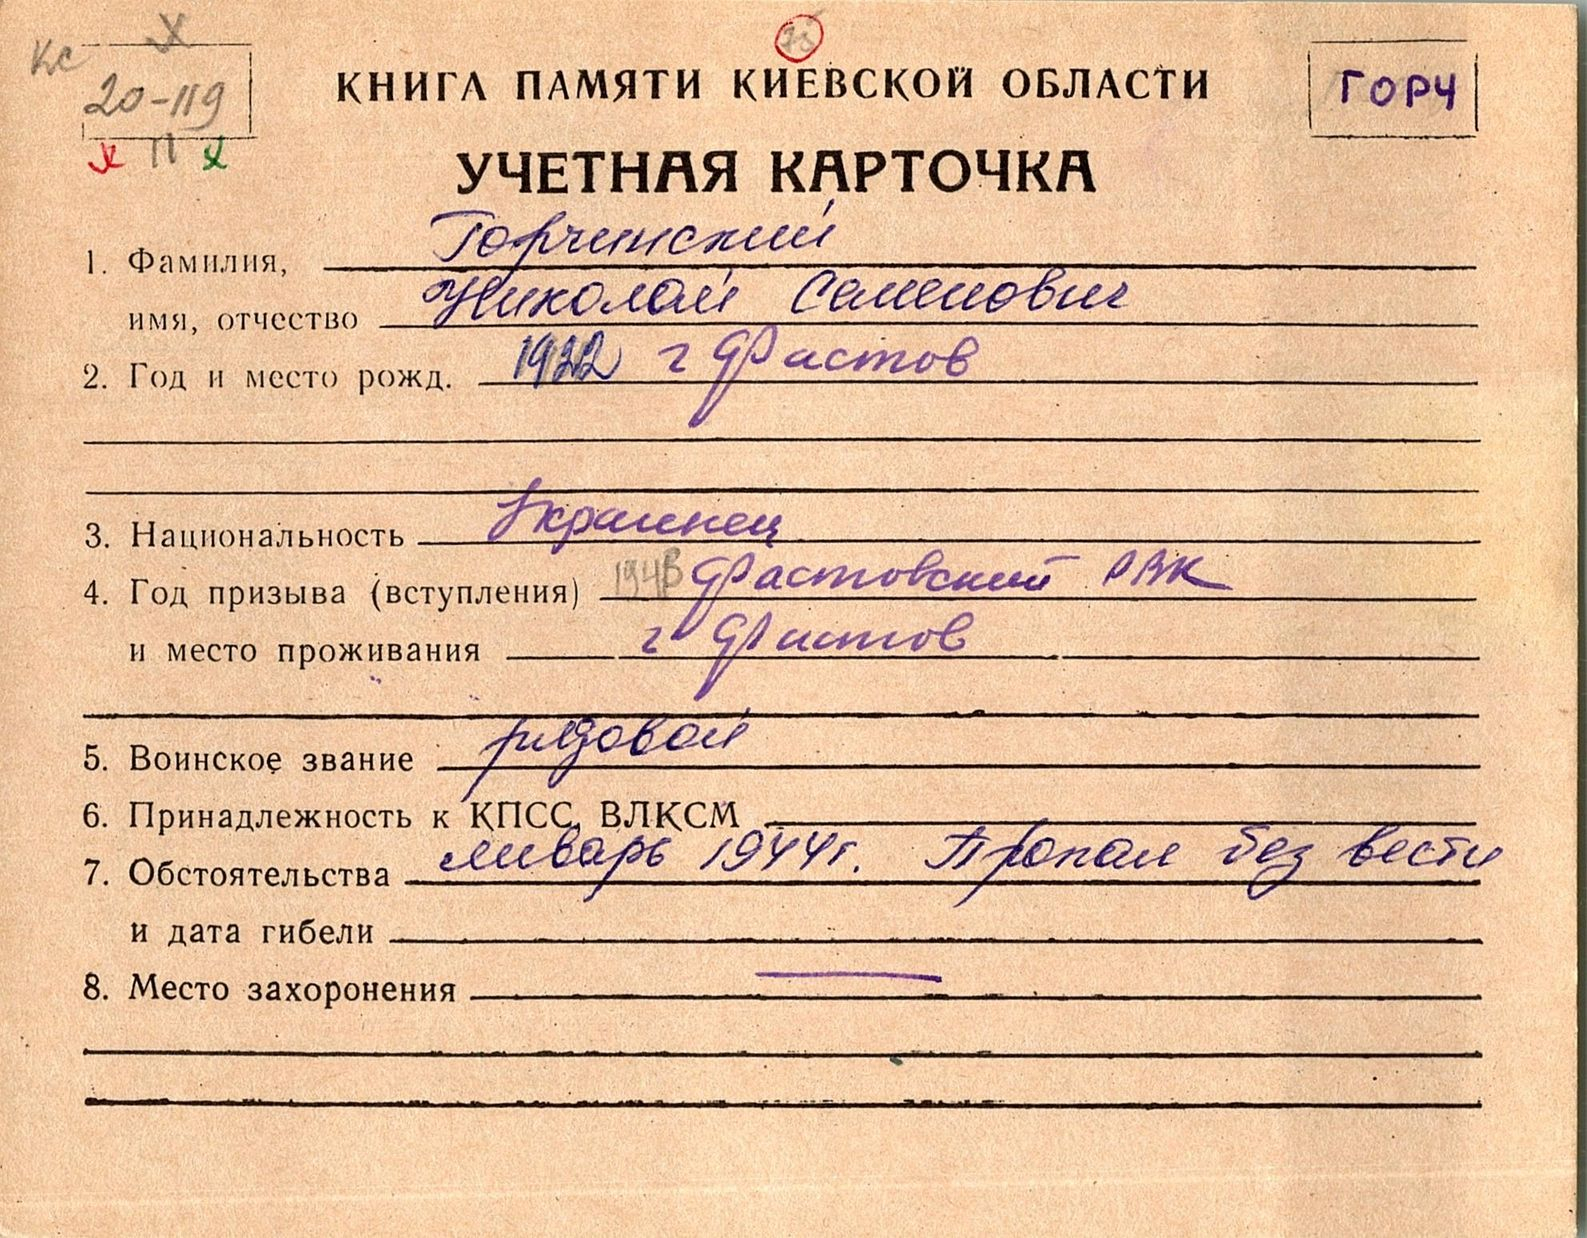 Кс
20-119
ГОРЧ
КНИГА ПАМЯТИ КИЕВСКОЙ ОБЛАСТИ
УЧЕТНАЯ КАРТОЧКА
1. Фамилия, Горчинский
имя, отчество Николай Семенович
2. Год и место рожд. 1922 г Фастов
3. Национальность Украинец
4. Год призыва (вступления) Фастовский РВК
и место проживания г Фастов
5. Воинское звание рядовой
6. Принадлежность к КПСС, ВЛКСМ
7. Обстоятельства январь 1944г. Пропал без вести
и дата гибели
8. Место захоронения —